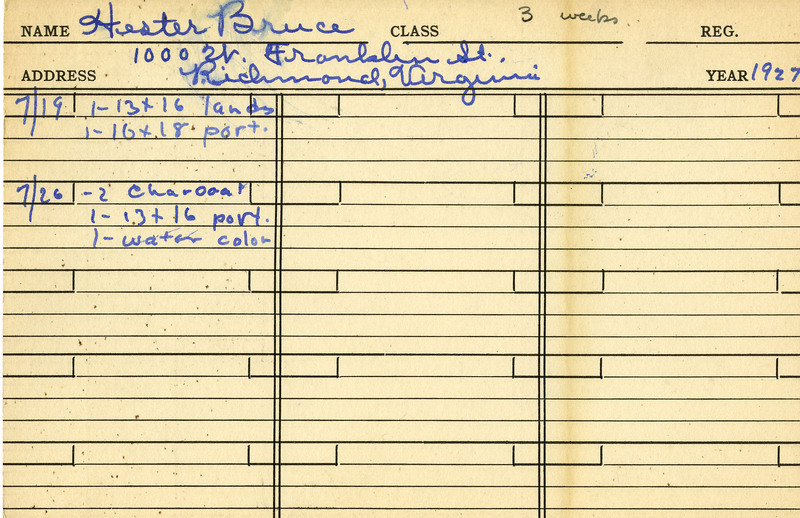 NAME Hester Bruce CLASS 3 weeks. REG.
1000 W. Franklin St.
ADDRESS Richmond, Virginia YEAR 1927
7/19 1-13x16 lands
1-16x18 port.
7/26 -2 Charcoal
1-13x16 port.
1-water color